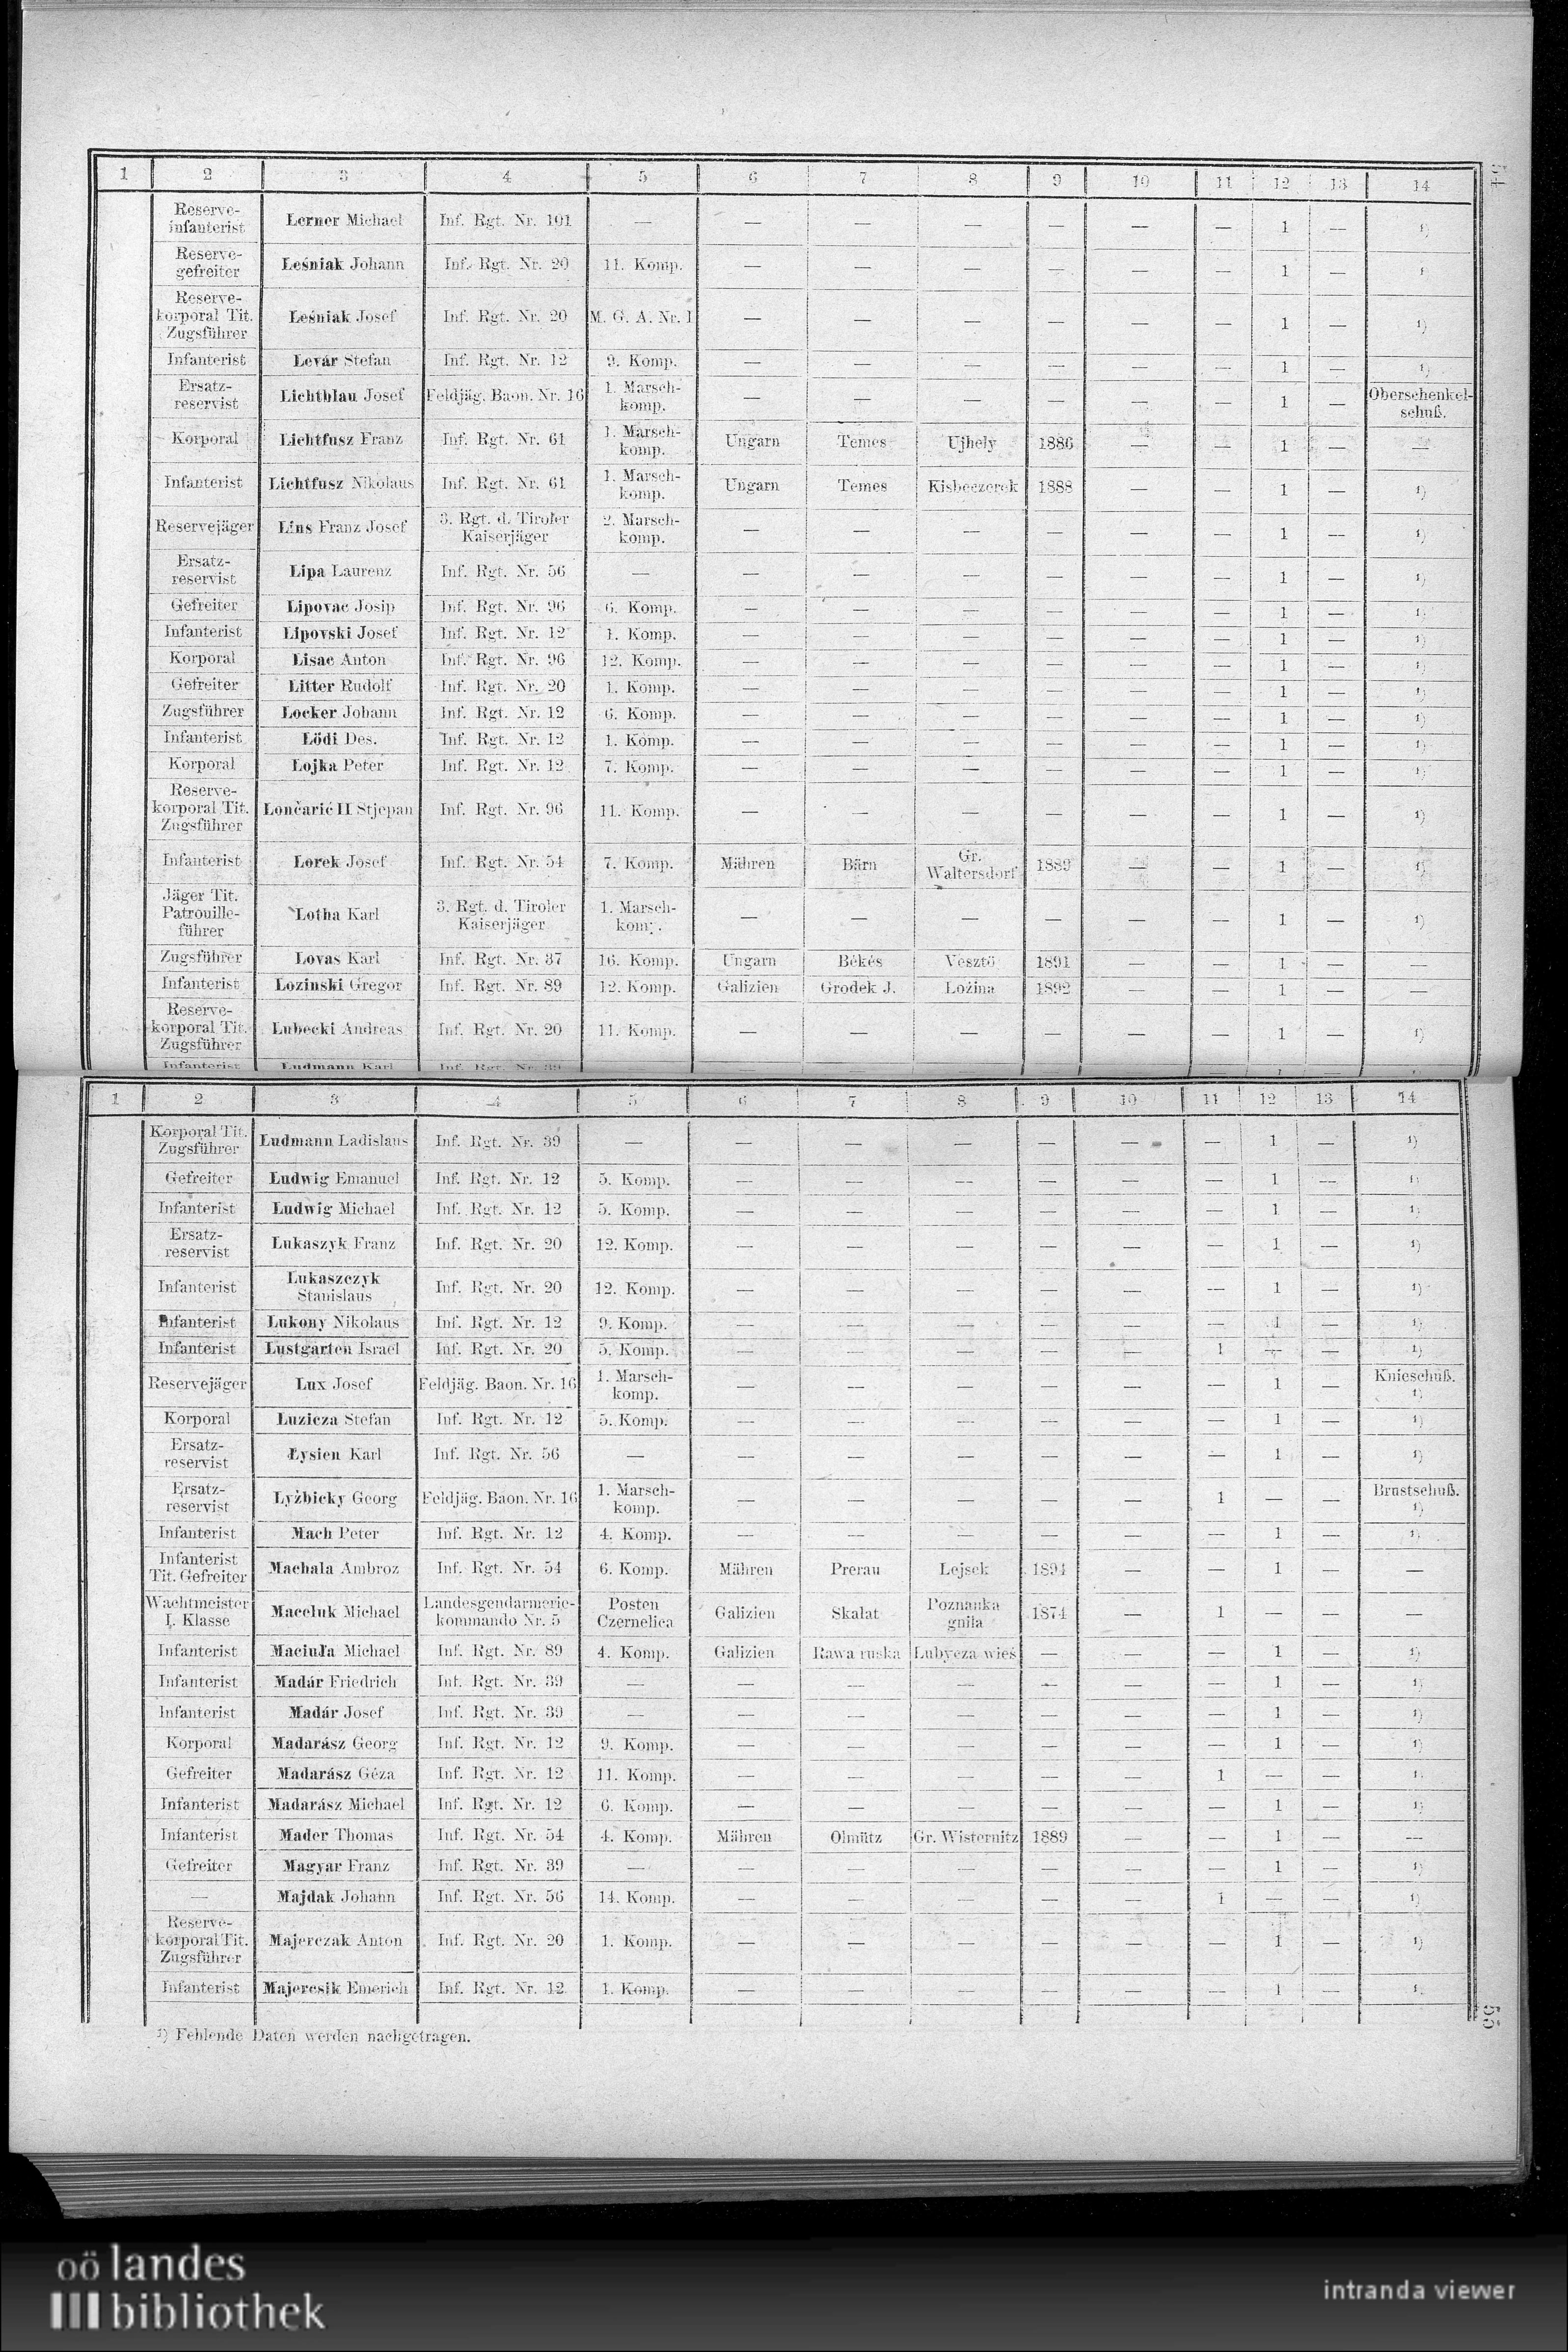 54
1 2 3 4 5 6 7 8 9 10 11 12 13 14
Reserve-
infanterist Lerner Michael Inf. Rgt. Nr. 101 — — — — — — — 1 — ¹)
Reserve-
gefreiter Leśniak Johann Inf. Rgt. Nr. 20 11. Komp. — — — — — — 1 — ¹)
Reserve-
korporal Tit.
Zugsführer Leśniak Josef Inf. Rgt. Nr. 20 M. G. A. Nr. I — — — — — — 1 — ¹)
Infanterist Levár Stefan Inf. Rgt. Nr. 12 9. Komp. — — — — — — 1 — ¹)
Ersatz-
reservist Lichtblau Josef Feldjäg. Baon. Nr. 16 1. Marsch-
komp. — — — — — — 1 — Oberschenkel-
schuß.
Korporal Lichtfusz Franz Inf. Rgt. Nr. 61 1. Marsch-
komp. Ungarn Temes Ujhely 1886 — — 1 — —
Infanterist Lichtfusz Nikolaus Inf. Rgt. Nr. 61 1. Marsch-
komp. Ungarn Temes Kisbeczerek 1888 — — 1 — ¹)
Reservejäger Lins Franz Josef 3. Rgt. d. Tiroler
Kaiserjäger 2. Marsch-
komp. — — — — — — 1 — ¹)
Ersatz-
reservist Lipa Laurenz Inf. Rgt. Nr. 56 — — — — — — — 1 — ¹)
Gefreiter Lipovac Josip Inf. Rgt. Nr. 96 6. Komp. — — — — — — 1 — ¹)
Infanterist Lipovski Josef Inf. Rgt. Nr. 12 1. Komp. — — — — — — 1 — ¹)
Korporal Lisac Anton Inf. Rgt. Nr. 96 12. Komp. — — — — — — 1 — ¹)
Gefreiter Litter Rudolf Inf. Rgt. Nr. 20 1. Komp. — — — — — — 1 — ¹)
Zugsführer Locker Johann Inf. Rgt. Nr. 12 6. Komp. — — — — — — 1 — ¹)
Infanterist Lödi Des. Inf. Rgt. Nr. 12 1. Komp. — — — — — — 1 — ¹)
Korporal Lojka Peter Inf. Rgt. Nr. 12 7. Komp. — — — — — — 1 — ¹)
Reserve-
korporal Tit.
Zugsführer Lončarić II Stjepan Inf. Rgt. Nr. 96 11. Komp. — — — — — — 1 — ¹)
Infanterist Lorek Josef Inf. Rgt. Nr. 54 7. Komp. Mähren Bärn Gr.
Waltersdorf 1889 — — 1 — ¹)
Jäger Tit.
Patrouille-
führer Lotha Karl 3. Rgt. d. Tiroler
Kaiserjäger 1. Marsch-
komp. — — — — — — 1 — ¹)
Zugsführer Lovas Karl Inf. Rgt. Nr. 37 16. Komp. Ungarn Békés Vesztö 1891 — — 1 — —
Infanterist Lozinski Gregor Inf. Rgt. Nr. 89 12. Komp. Galizien Grodek J. Łozina 1892 — — 1 — —
Reserve-
korporal Tit.
Zugsführer Lubecki Andreas Inf. Rgt. Nr. 20 11. Komp. — — — — — — 1 — ¹)
Infanterist Ludmann Karl Inf. Rgt. Nr. 39 — 1 —
1 2 3 4 5 6 7 8 9 10 11 12 13 14
Korporal Tit.
Zugsführer Ludmann Ladislaus Inf. Rgt. Nr. 39 — — — — — — — 1 — ¹)
Gefreiter Ludwig Emanuel Inf. Rgt. Nr. 12 5. Komp. — — — — — — 1 — ¹)
Infanterist Ludwig Michael Inf. Rgt. Nr. 12 5. Komp. — — — — — — 1 — ¹)
Ersatz-
reservist Lukaszyk Franz Inf. Rgt. Nr. 20 12. Komp. — — — — — — 1 — ¹)
Infanterist Lukaszczyk
Stanislaus Inf. Rgt. Nr. 20 12. Komp. — — — — — — 1 — ¹)
Infanterist Lukony Nikolaus Inf. Rgt. Nr. 12 9. Komp. — — — — — — 1 — ¹)
Infanterist Lustgarten Israel Inf. Rgt. Nr. 20 5. Komp. — — — — — 1 — — ¹)
Reservejäger Lux Josef Feldjäg. Baon. Nr. 16 1. Marsch-
komp. — — — — — — 1 — Knieschuß.
¹)
Korporal Luzicza Stefan Inf. Rgt. Nr. 12 5. Komp. — — — — — — 1 — ¹)
Ersatz-
reservist Łysien Karl Inf. Rgt. Nr. 56 — — — — — — — 1 — ¹)
Ersatz-
reservist Lyžbicky Georg Feldjäg. Baon. Nr. 16 1. Marsch-
komp. — — — — — 1 — — Brustschuß.
¹)
Infanterist Mach Peter Inf. Rgt. Nr. 12 4. Komp. — — — — — — 1 — ¹)
Infanterist
Tit. Gefreiter Machala Ambroz Inf. Rgt. Nr. 54 6. Komp. Mähren Prerau Lejsek 1894 — — 1 — —
Wachtmeister
I. Klasse Maceluk Michael Landesgendarmerie-
kommando Nr. 5 Posten
Czernelica Galizien Skałat Poznanka
gniła 1874 — 1 — — —
Infanterist Maciuła Michael Inf. Rgt. Nr. 89 4. Komp. Galizien Rawa ruska Lubycza wieś — — — 1 — ¹)
Infanterist Madár Friedrich Inf. Rgt. Nr. 39 — — — — — — — 1 — ¹)
Infanterist Madár Josef Inf. Rgt. Nr. 39 — — — — — — — 1 — ¹)
Korporal Madarász Georg Inf. Rgt. Nr. 12 9. Komp. — — — — — — 1 — ¹)
Gefreiter Madarász Géza Inf. Rgt. Nr. 12 11. Komp. — — — — — 1 — — ¹)
Infanterist Madarász Michael Inf. Rgt. Nr. 12 6. Komp. — — — — — — 1 — ¹)
Infanterist Mader Thomas Inf. Rgt. Nr. 54 4. Komp. Mähren Olmütz Gr. Wisternitz 1889 — — 1 — —
Gefreiter Magyar Franz Inf. Rgt. Nr. 39 — — — — — — — 1 — ¹)
— Majdak Johann Inf. Rgt. Nr. 56 14. Komp. — — — — — 1 — — ¹)
Reserve-
korporal Tit.
Zugsführer Majerczak Anton Inf. Rgt. Nr. 20 1. Komp. — — — — — — 1 — ¹)
Infanterist Majercsik Emerich Inf. Rgt. Nr. 12 1. Komp. — — — — — — 1 — ¹)
55
¹) Fehlende Daten werden nachgetragen.
oö landes
bibliothek
intranda viewer